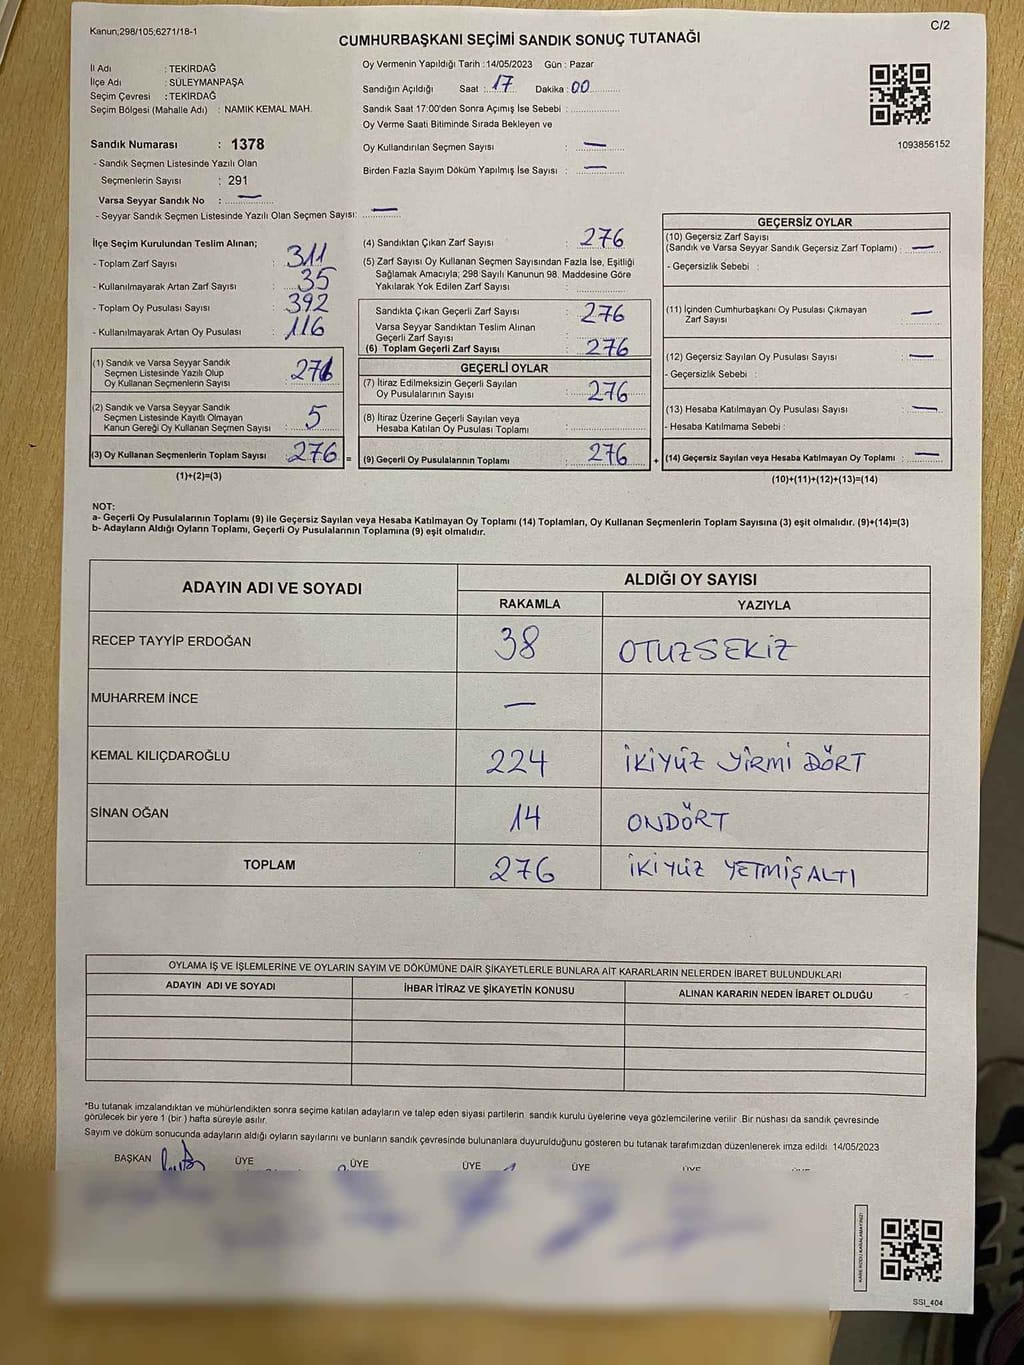 Kanun;298/105;6271/18-1
C/2
CUMHURBAŞKANI SEÇİMİ SANDIK SONUÇ TUTANAĞI
İl Adı : TEKİRDAĞ
İlçe Adı : SÜLEYMANPAŞA
Seçim Çevresi : TEKİRDAĞ
Seçim Bölgesi (Mahalle Adı) : NAMIK KEMAL MAH.
Oy Vermenin Yapıldığı Tarih :14/05/2023 Gün : Pazar
Sandığın Açıldığı Saat : 17 Dakika : 00
Sandık Saat 17:00'den Sonra Açımış İse Sebebi :
Oy Verme Saati Bitiminde Sırada Bekleyen ve
Oy Kullandırılan Seçmen Sayısı : —
Birden Fazla Sayım Döküm Yapılmış İse Sayısı : —
1093856152
Sandık Numarası : 1378
- Sandık Seçmen Listesinde Yazılı Olan
Seçmenlerin Sayısı : 291
Varsa Seyyar Sandık No : —
- Seyyar Sandık Seçmen Listesinde Yazılı Olan Seçmen Sayısı: —
İlçe Seçim Kurulundan Teslim Alınan;
- Toplam Zarf Sayısı : 311
- Kullanılmayarak Artan Zarf Sayısı : 35
- Toplam Oy Pusulası Sayısı : 392
- Kullanılmayarak Artan Oy Pusulası : 116
(1) Sandık ve Varsa Seyyar Sandık
Seçmen Listesinde Yazılı Olup
Oy Kullanan Seçmenlerin Sayısı :
(2) Sandık ve Varsa Seyyar Sandık
Seçmen Listesinde Kayıtlı Olmayan
Kanun Gereği Oy Kullanan Seçmen Sayısı : 5
(3) Oy Kullanan Seçmenlerin Toplam Sayısı : 276 =
(1)+(2)=(3)
(4) Sandıktan Çıkan Zarf Sayısı : 276
(5) Zarf Sayısı Oy Kullanan Seçmen Sayısından Fazla İse, Eşitliği
Sağlamak Amacıyla; 298 Sayılı Kanunun 98. Maddesine Göre
Yakılarak Yok Edilen Zarf Sayısı :
Sandıkta Çıkan Geçerli Zarf Sayısı : 276
Varsa Seyyar Sandıktan Teslim Alınan
Geçerli Zarf Sayısı :
(6) Toplam Geçerli Zarf Sayısı : 276
GEÇERLİ OYLAR
(7) İtiraz Edilmeksizin Geçerli Sayılan
Oy Pusulalarının Sayısı : 276
(8) İtiraz Üzerine Geçerli Sayılan veya
Hesaba Katılan Oy Pusulası Toplamı :
(9) Geçerli Oy Pusulalarının Toplamı : 276 +
GEÇERSİZ OYLAR
(10) Geçersiz Zarf Sayısı
(Sandık ve Varsa Seyyar Sandık Geçersiz Zarf Toplamı) : —
- Geçersizlik Sebebi :
(11) İçinden Cumhurbaşkanı Oy Pusulası Çıkmayan
Zarf Sayısı : —
(12) Geçersiz Sayılan Oy Pusulası Sayısı : —
- Geçersizlik Sebebi :
(13) Hesaba Katılmayan Oy Pusulası Sayısı : —
- Hesaba Katılmama Sebebi :
(14) Geçersiz Sayılan veya Hesaba Katılmayan Oy Toplamı : —
(10)+(11)+(12)+(13)=(14)
NOT:
a- Geçerli Oy Pusulalarının Toplamı (9) ile Geçersiz Sayılan veya Hesaba Katılmayan Oy Toplamı (14) Toplamları, Oy Kullanan Seçmenlerin Toplam Sayısına (3) eşit olmalıdır. (9)+(14)=(3)
b- Adayların Aldığı Oyların Toplamı, Geçerli Oy Pusulalarının Toplamına (9) eşit olmalıdır.
ADAYIN ADI VE SOYADI
ALDIĞI OY SAYISI
RAKAMLA YAZIYLA
RECEP TAYYİP ERDOĞAN 38 OTUZSEKİZ
MUHARREM İNCE —
KEMAL KILIÇDAROĞLU 224 İKİYÜZ YİRMİ DÖRT
SİNAN OĞAN 14 ONDÖRT
TOPLAM 276 İKİYÜZ YETMİŞALTI
OYLAMA İŞ VE İŞLEMLERİNE VE OYLARIN SAYIM VE DÖKÜMÜNE DAİR ŞİKAYETLERLE BUNLARA AİT KARARLARIN NELERDEN İBARET BULUNDUKLARI
ADAYIN ADI VE SOYADI İHBAR İTİRAZ VE ŞİKAYETİN KONUSU ALINAN KARARIN NEDEN İBARET OLDUĞU
*Bu tutanak imzalandıktan ve mühürlendikten sonra seçime katılan adayların ve talep eden siyasi partilerin sandık kurulu üyelerine veya gözlemcilerine verilir. Bir nüshası da sandık çevresinde
görülecek bir yere 1 (bir ) hafta süreyle asılır.
Sayım ve döküm sonucunda adayların aldığı oyların sayılarını ve bunların sandık çevresinde bulunanlara duyurulduğunu gösteren bu tutanak tarafımızdan düzenlenerek imza edildi. 14/05/2023
BAŞKAN ÜYE ÜYE ÜYE ÜYE ÜYE
KARE KODU KARALAMAYINIZ!
SSI_404